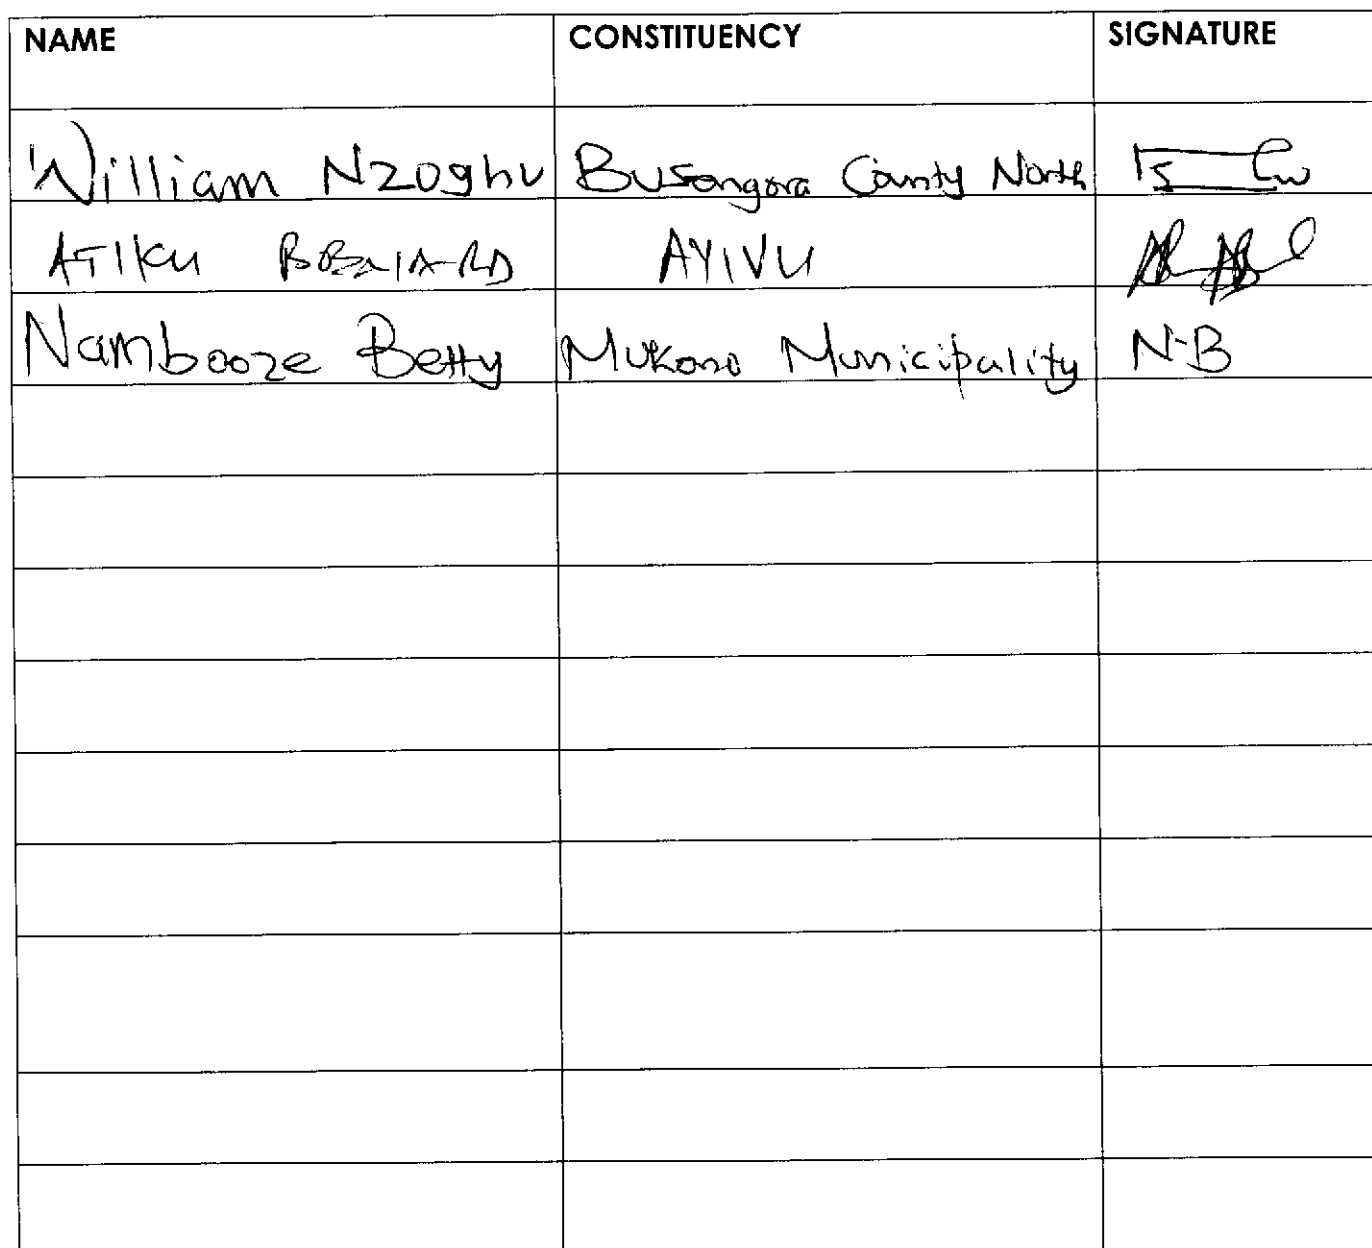 NAME CONSTITUENCY SIGNATURE
William Nzoghu Busongora County North
ATIKU AYIVU
Nambooze Betty Mukono Municipality N-B